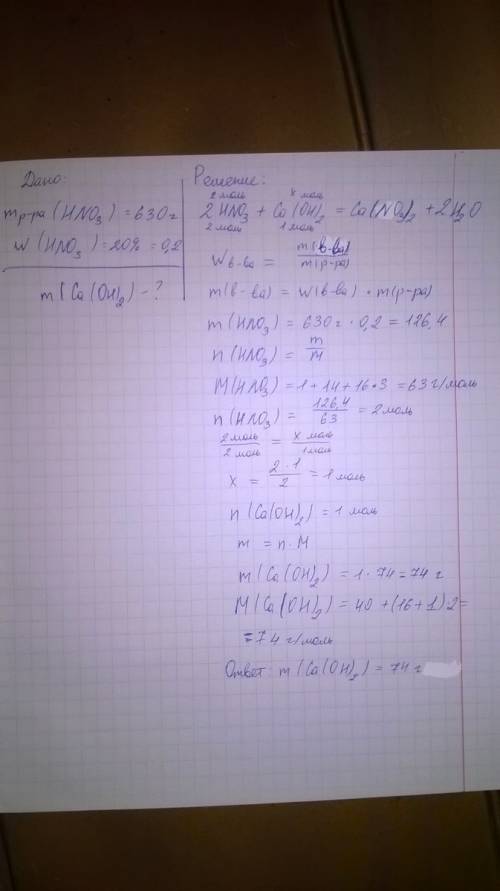 Дано:
m р-ра (HNO3) = 630 г
W (HNO3) = 20% = 0,2
m (Ca(OH)2) - ?
Решение:
2 моль x моль
2HNO3 + Ca(OH)2 = Ca(NO3)2 + 2H2O
2 моль 1 моль
W в-ва = m(в-ва) / m(р-ра)
m(в-ва) = W(в-ва) • m(р-ра)
m(HNO3) = 630 г • 0,2 = 126,4
n(HNO3) = m / M
M(HNO3) = 1 + 14 + 16 • 3 = 63 г/моль
n(HNO3) = 126,4 / 63 = 2 моль
2 моль / 2 моль = x моль / 1 моль
x = 2 · 1 / 2 = 1 моль
n (Ca(OH)2) = 1 моль
m = n · M
m (Ca(OH)2) = 1 · 74 = 74 г
M (Ca(OH)2) = 40 + (16 + 1) 2 =
= 74 г/моль
Ответ: m (Ca(OH)2) = 74 г